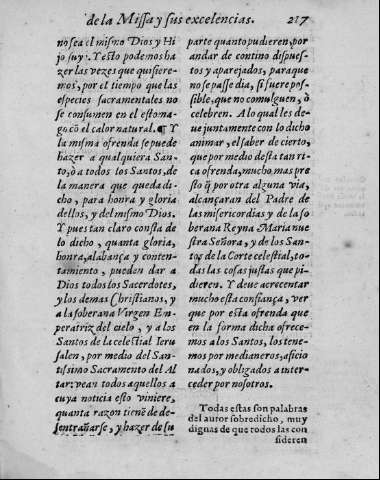 de la Missa y sus excelencias. 217
no sea el mismo Dios y Hi
jo suyo. Y esto podemos ha
zer las vezes que quisiere-
mos, por el tiempo que las
especies sacramentales no
se consumen en el estoma-
go cō el calor natural. ¶ Y
la misma ofrenda se puede
hazer a qualquiera San-
to, ò a todos los Santos, de
la manera que queda di-
cho, para honra y gloria
dellos, y del mismo Dios.
Y pues tan claro consta de
lo dicho, quanta gloria,
honra, alabança y conten-
tamiento, pueden dar a
Dios todos los Sacerdotes,
y los demas Christianos, y
a la soberana Virgen Em-
peratriz del cielo, y a los
Santos de la celestial Ieru
salen, por medio del San-
tissimo Sacramento del Al
tar: vean todos aquellos a
cuya noticia esto viniere,
quanta razon tienē de de-
sentrañarse, y hazer de su
parte quanto pudieren, por
andar de contino dispues-
tos y aparejados, para que
no se passe dia, si fuere pos-
sible, que no comulguen, ò
celebren. A lo qual les de-
ue juntamente con lo dicho
animar, el saber de cierto,
que por medio desta tan ri-
ca ofrenda, mucho mas pre
sto q̄ por otra alguna via,
alcançaran del Padre de
las misericordias y de la so
berana Reyna Maria nue
stra Señora, y de los San-
tos de la Corte celestial, to-
das las cosas justas que pi-
dieren. Y deue acrecentar
mucho esta confiança, ver
que por esta ofrenda que
en la forma dicha ofrece-
mos a los Santos, los tene-
mos por medianeros, aficio
nados, y obligados a inter-
ceder por nosotros.
Todas estas son palabras
del autor sobredicho, muy
dignas de que todos las con
sideren